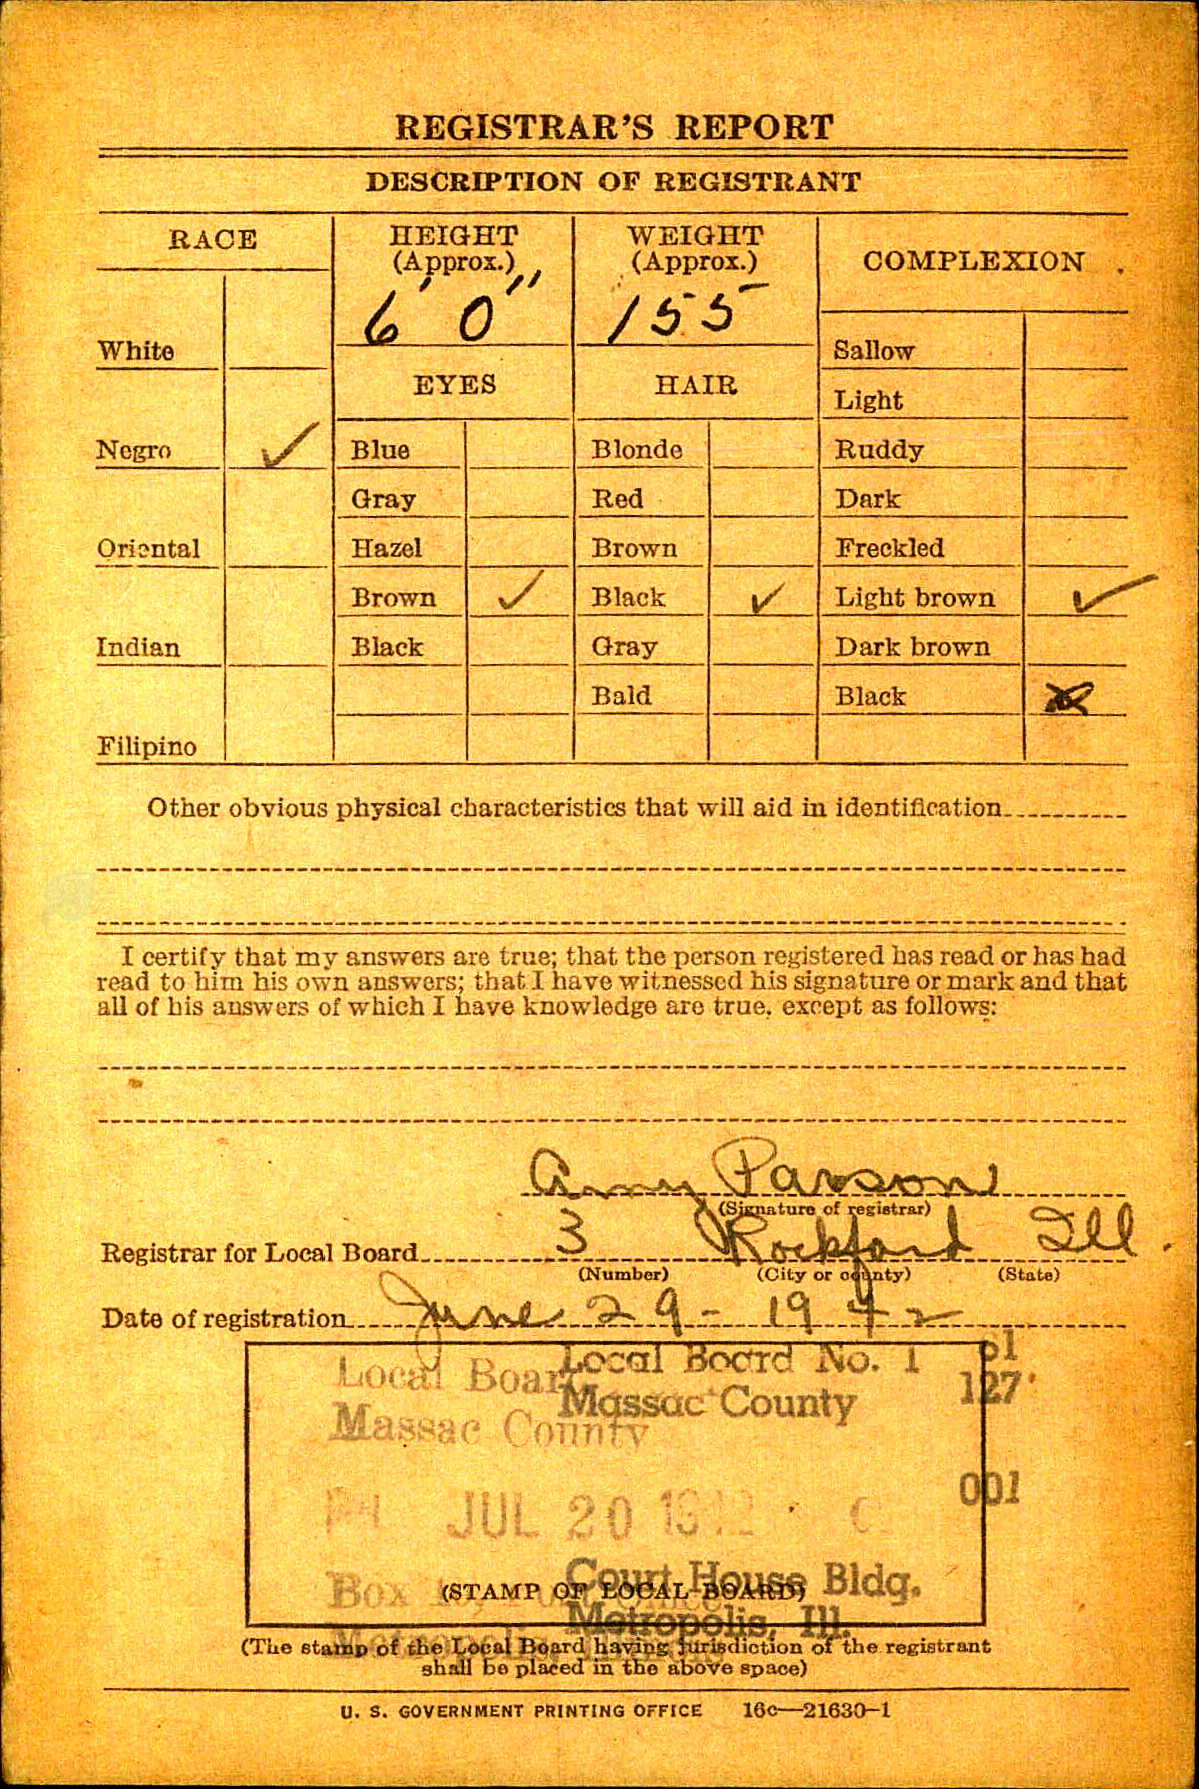 REGISTRAR'S REPORT
DESCRIPTION OF REGISTRANT
RACE
HEIGHT (Approx.)
6' 0"
WEIGHT (Approx.)
155
COMPLEXION
White
Negro ✓
Oriental
Indian
Filipino
EYES
Blue
Gray
Hazel
Brown ✓
Black
HAIR
Blonde
Red
Brown
Black ✓
Gray
Bald
Sallow
Light
Ruddy
Dark
Freckled
Light brown ✓
Dark brown
Black
Other obvious physical characteristics that will aid in identification
I certify that my answers are true; that the person registered has read or has had
read to him his own answers; that I have witnessed his signature or mark and that
all of his answers of which I have knowledge are true, except as follows:
Amy Parson
(Signature of registrar)
Registrar for Local Board 3 Rockford Ill.
(Number) (City or county) (State)
Date of registration June 29 - 1942
Local Board No. 1 61
Massac County 127
001
Local Board
Massac County
JUL 20 1942
Court House Bldg.
Metropolis, Ill.
Box
(STAMP OF LOCAL BOARD)
(The stamp of the Local Board having jurisdiction of the registrant
shall be placed in the above space)
U. S. GOVERNMENT PRINTING OFFICE 16c—21630-1